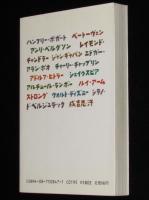 ハンフリー・ボガート ベートーヴェン
アンリ・ベルグソン レイモンド・
チャンドラー ジャン・ギャバン エドガー・
アラン・ポオ チャーリー・チャップリン
アドルフ・ヒトラー シェイクスピア
アルチュール・ランボー ルイ・アーム
ストロング ウォルト・ディズニー シラノ・
ド・ベルジュラック 成吉思汗